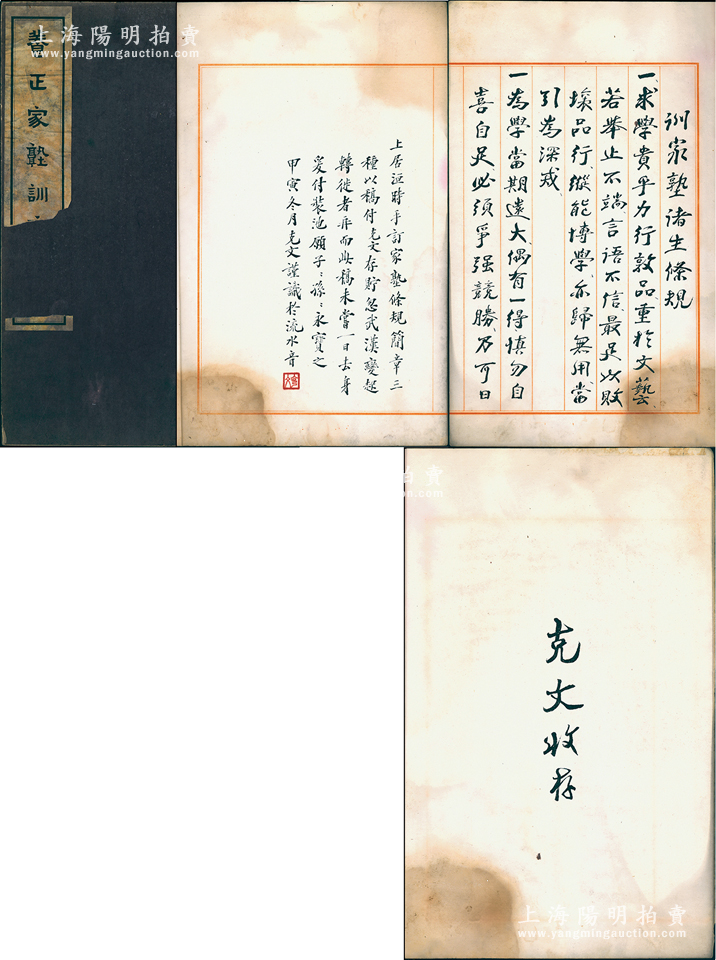 上海陽明拍賣
www.yangmingauction.com
養正家塾訓
上海陽明拍賣
www.yangmingauction.com
訓家塾諸生條規
一、求學貴乎力行敦品重於文藝
若舉止不端、言語不信、最足以敗
壞品行、縱能博學、亦歸無用、當
引為深戒
一、為學當期遠大、偶有一得慎勿自
喜自足必須爭强競勝、乃可日
上居洹時手訂家塾條規簡章三
種以稿付克文存貯忽武漢變起
轉徙者再而此稿未嘗一日去身
爰付裝池願子:孫:永寶之
甲寅冬月克文謹識於流水音
克文收存
上海陽明拍賣
www.yangmingauction.com